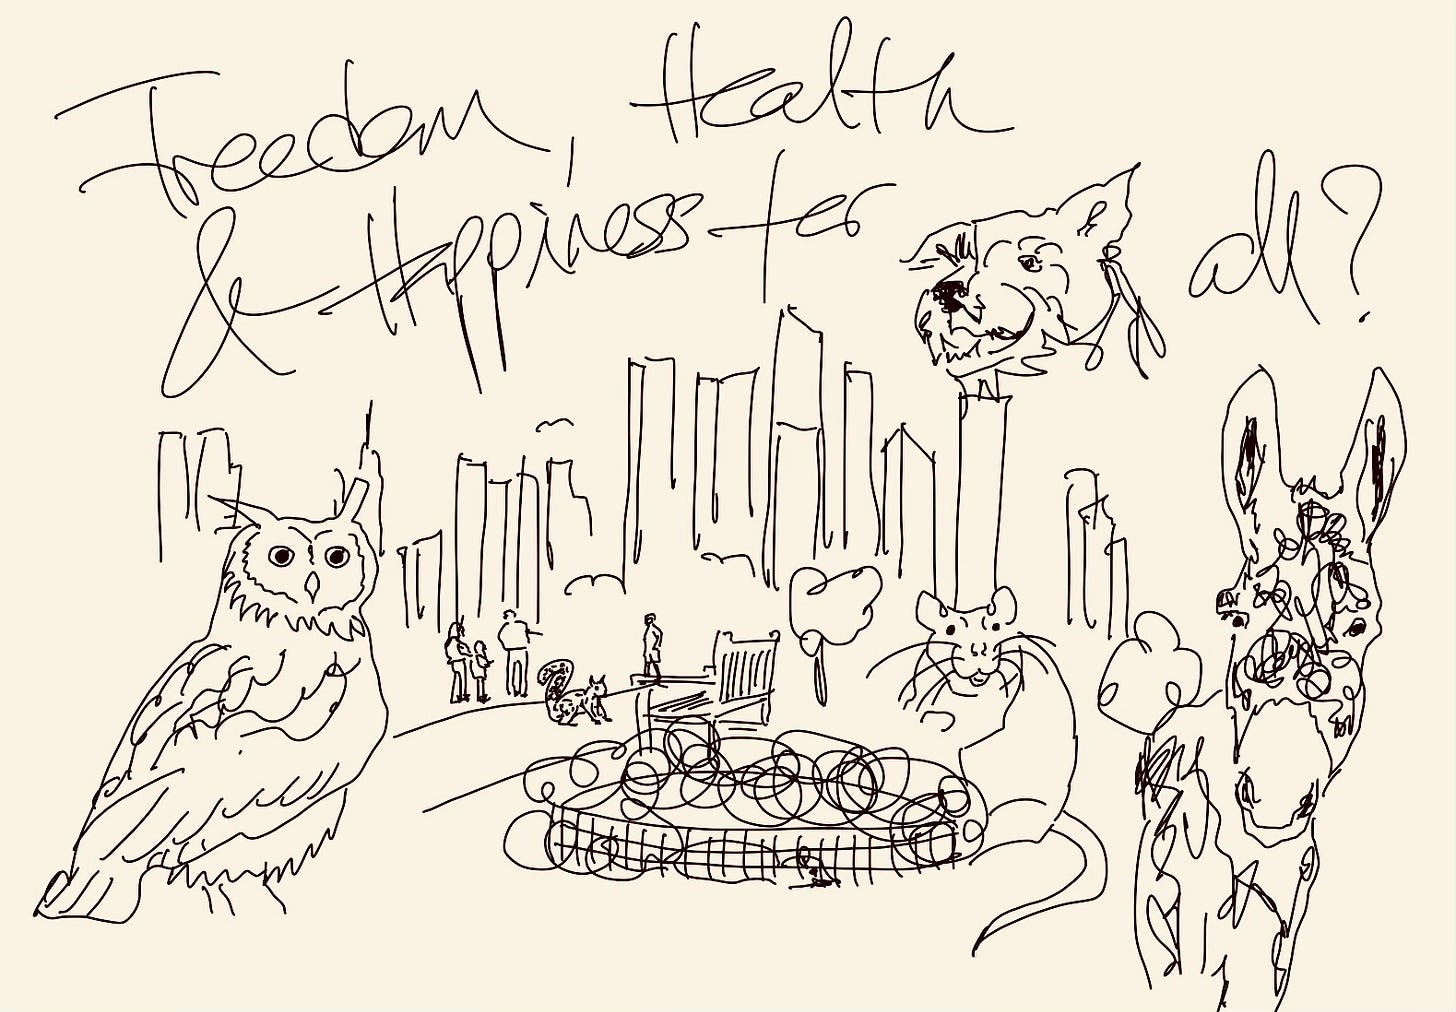 Freedom, Health
& Happiness for all?